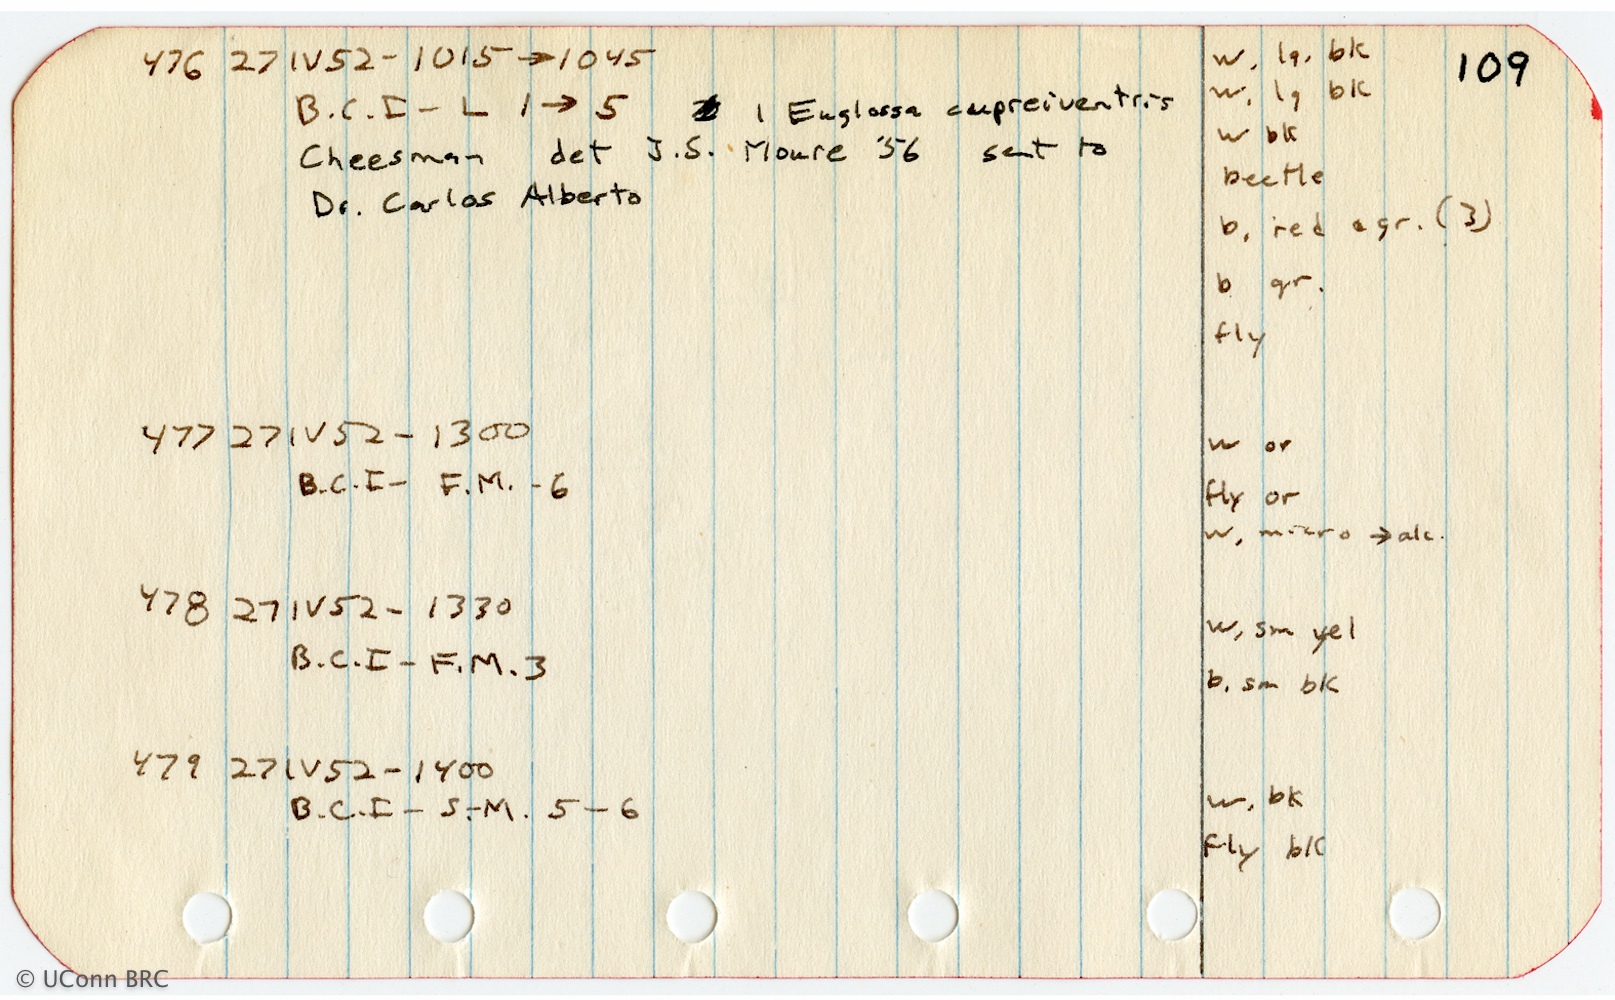 109
476 27IV52- 1015→1045
B.C.I - L 1→5 1 Euglossa cupreiventris
Cheesman det J.S. Moure '56 sent to
Dr. Carlos Alberto
w, lg, bk
w, lg bk
w bk
beetle
b, red &gr. (3)
b gr.
fly
477 27IV52- 1300
B.C.I- F.M. -6
w or
fly or
w, micro →alc.
478 27IV52- 1330
B.C.I- F.M.3
w, sm yel
b, sm bk
479 27IV52-1400
B.C.I- S.M. 5-6
w, bk
fly bk
© UConn BRC